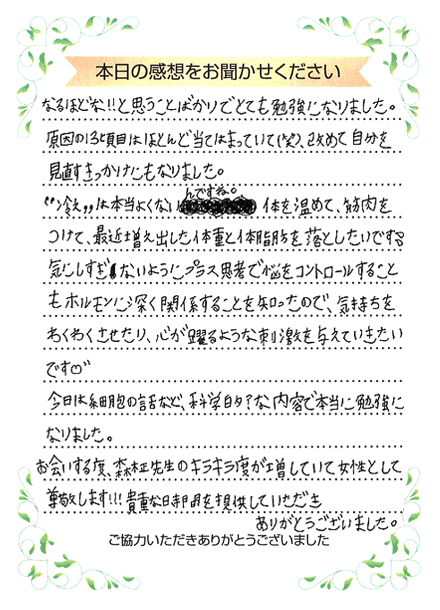 本日の感想をお聞かせください
なるほどな!!と思うことばかりでとても勉強になりました。
原因の13項目はほとんど当てはまっていて(笑)、改めて自分を
見直すきっかけにもなりました。
"冷え"は本当よくないんですね。体を温めて、筋肉を
つけて、最近増え出した体重と体脂肪を落としたいです
気にしすぎないようにプラス思考で脳をコントロールすること
もホルモンに深く関係することを知ったので、気持ちを
わくわくさせたり、心が躍るような刺激を与えていきたい
です
今日は細胞の話など、科学的?な内容で本当に勉強に
なりました。
お会いする度、森松先生のキラキラ度が増していて女性として
尊敬します!!!貴重な時間を提供していただき
ありがとうございました。
ご協力いただきありがとうございました